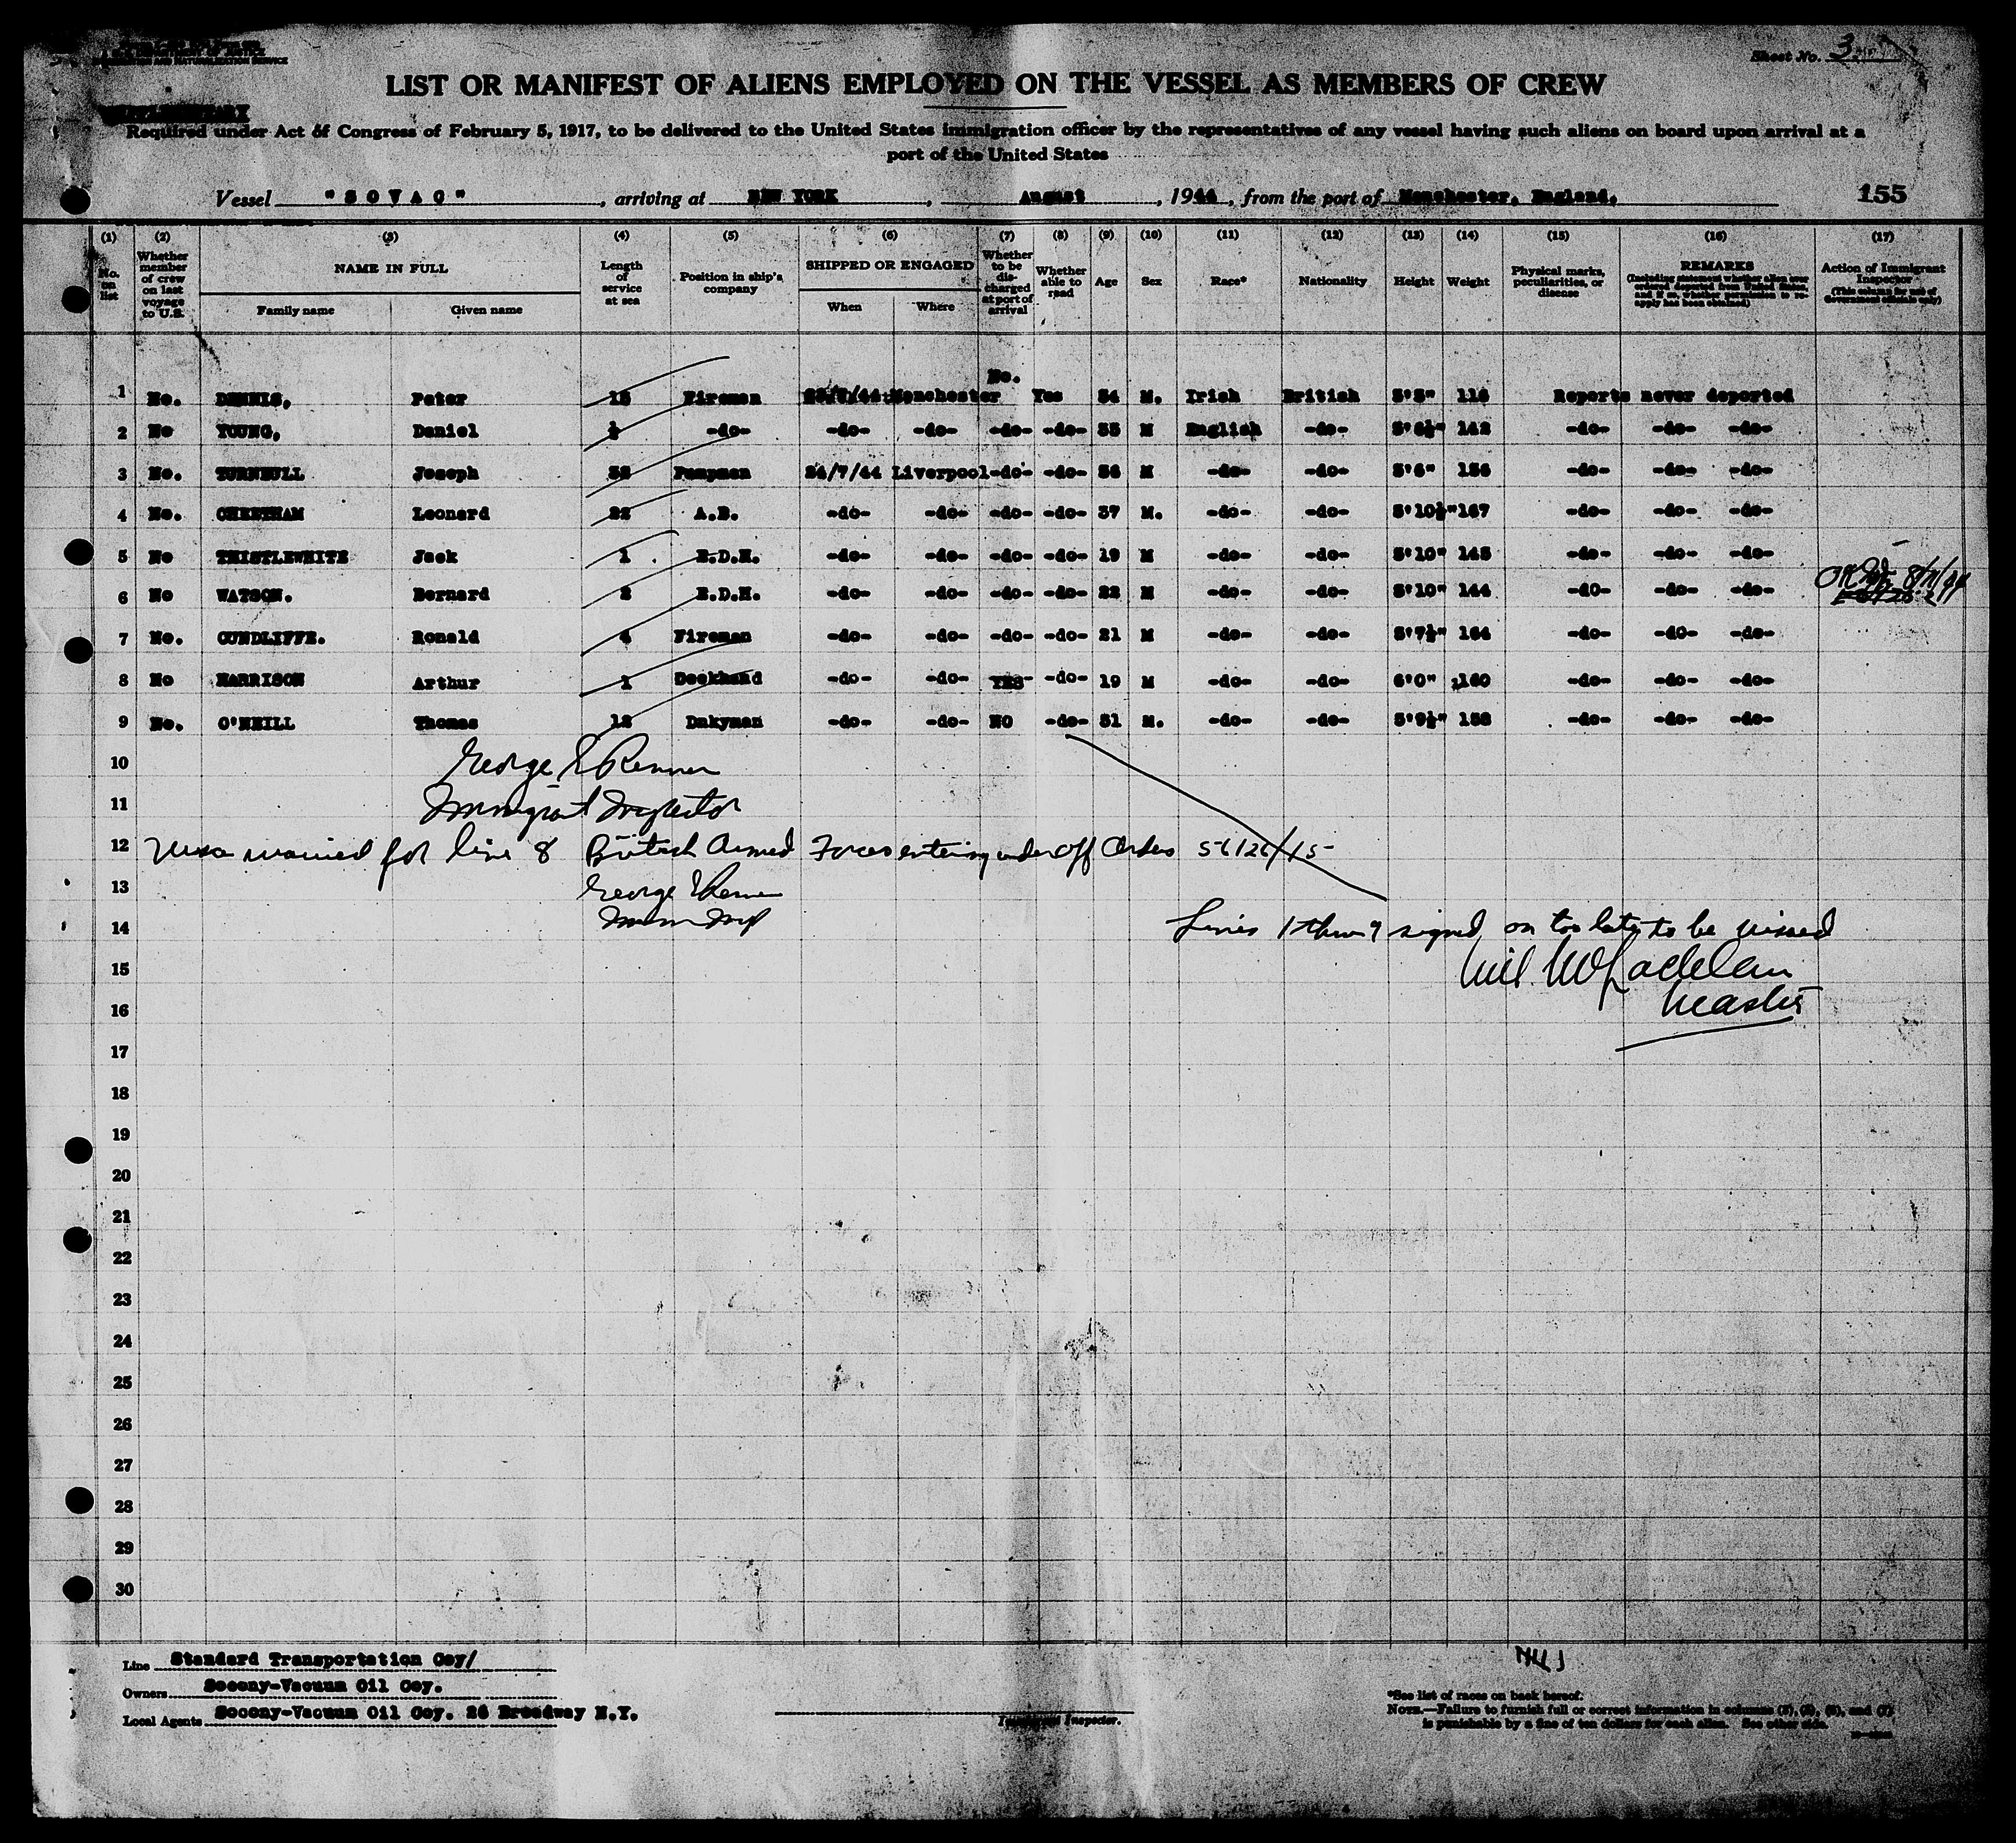 Sheet No. 3
LIST OR MANIFEST OF ALIENS EMPLOYED ON THE VESSEL AS MEMBERS OF CREW
Required under Act of Congress of February 5, 1917, to be delivered to the United States immigration officer by the representatives of any vessel having such aliens on board upon arrival at a
port of the United States
Vessel "SOVAC", arriving at NEW YORK, August, 1944, from the port of Manchester, England, 155
(1) (2) (3) (4) (5) (6) (7) (8) (9) (10) (11) (12) (13) (14) (15) (16) (17)
No. on list Whether member of crew on last voyage to U.S. NAME IN FULL Family name Given name Length of service at sea Position in ship's company SHIPPED OR ENGAGED When Where Whether to be discharged at port of arrival Whether able to read Age Sex Race* Nationality Height Weight Physical marks, peculiarities, or disease REMARKS (Including statement whether alien ever ordered deported from United States, and if so, whether permission to reapply has been obtained) Action of Immigrant Inspector (This column for use of Government officials only)
No.
1 No. DENNIS, Peter 15 Fireman Manchester Yes M. Irish British 5'5" Reports never deported
2 No YOUNG, Daniel -do- -do- -do- -do- -do- M English -do- 142 -do- -do- -do-
3 No. TURNBULL Joseph Pumpman 24/7/44 Liverpool -do- -do- M -do- -do- 5'6" -do- -do- -do-
4 No. CHEETHAM Leonard 22 A.B. -do- -do- -do- -do- 37 M. -do- -do- 5'10½" 167 -do- -do- -do-
5 No THISTLEWHITE Jack 1 E.D.H. -do- -do- -do- -do- 19 M -do- -do- 5'10" 145 -do- -do- -do-
6 No WATSON. Bernard 2 E.D.H. -do- -do- -do- -do- 22 M -do- -do- 5'10" 144 -do- -do- -do-
7 No. CUNDLIFFE. Ronald 4 Fireman -do- -do- -do- -do- 21 M -do- -do- 5'7½" 164 -do- -do- -do-
8 No HARRISON Arthur 1 Deckhand -do- -do- YES -do- 19 M -do- -do- 6'0" 160 -do- -do- -do-
9 No. O'NEILL Thomas 12 Dnkyman -do- -do- NO -do- 31 M. -do- -do- 5'9½" 158 -do- -do- -do-
10 George E Renner
11 Immigrant Inspector
12 Visa waived for line 8 British Armed Forces entering under off Orders 56126/15
13 George E Renner
14 Lines 1 thru 9 signed on too late to be visaed
15 McLachlan
16 Master
17
18
19
20
21
22
23
24
25
26
27
28
29
30
Line Standard Transportation Coy/
Owners Socony-Vacuum Oil Coy.
Local Agents Socony-Vacuum Oil Coy. 26 Broadway N.Y.
Immigrant Inspector.
*See list of races on back hereof.
NOTE.—Failure to furnish full or correct information in columns (3), (5), (6), and (7)
is punishable by a fine of ten dollars for each alien. See other side.